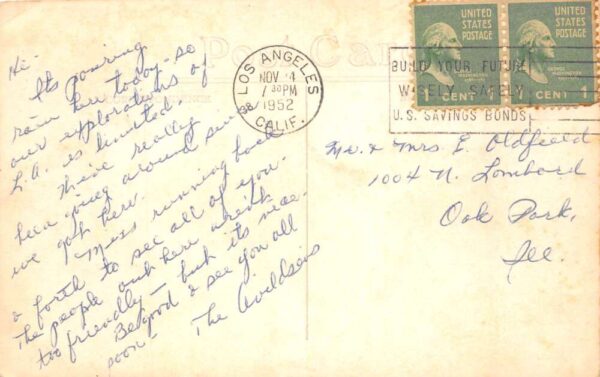 Hi -
Its pouring
rain here today - so
our explorations of
L.A. is limited.
been going around since
we got here.
Miss running back
& forth to see all of you.
The people out here
too friendly - but its nice.
Be good & see you all
soon - The
Post Card
LOS ANGELES
NOV 4
7 30 PM
1952
CALIF.
BUILD YOUR FUTURE
WISELY SAFELY
U.S. SAVINGS BONDS
UNITED STATES POSTAGE
1 CENT 1
UNITED STATES POSTAGE
1 CENT 1
Mr. & Mrs. E. Oldfield
1004 N. Lombard
Oak Park,
Ill.